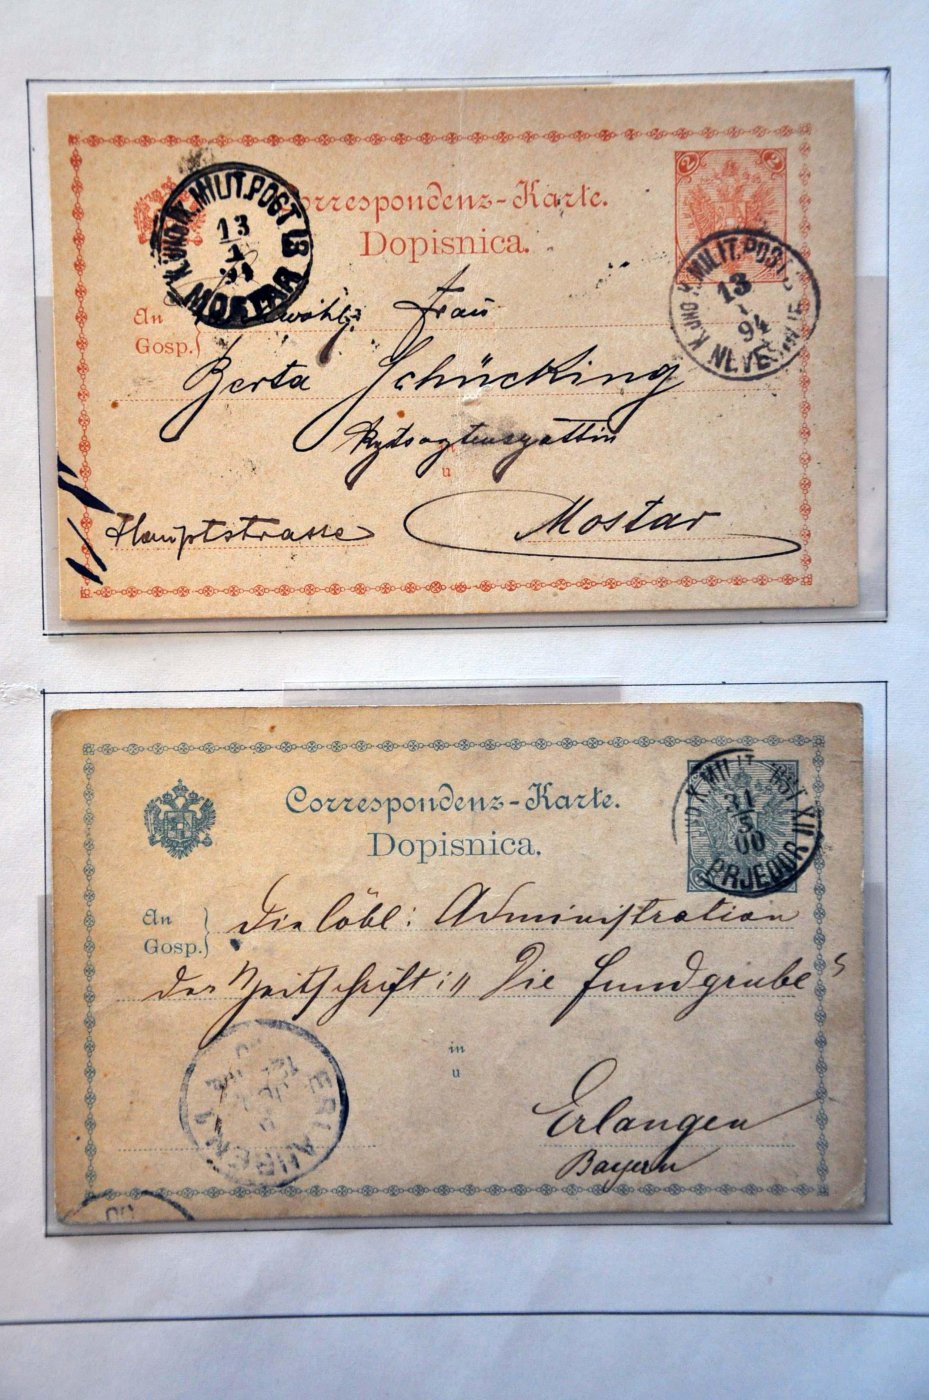 Correspondenz-Karte.
Dopisnica.
2
K. UND K. MILIT. POST 18
13
1
94
MOSTAR
K. UND K. MILIT. POST
13
1
94
NEVESINJE
An
Gosp.
Frau
Berta Schücking
u
Hauptstrasse
Mostar
Correspondenz-Karte.
Dopisnica.
UND K. MILIT. POST XII
31
5
00
PRJEDOR
An
Gosp.
Die löbl: Administration
der Zeitschrift: „Die Fundgrube“
in
u
Erlangen
Bayern
ERLANGEN 1
00